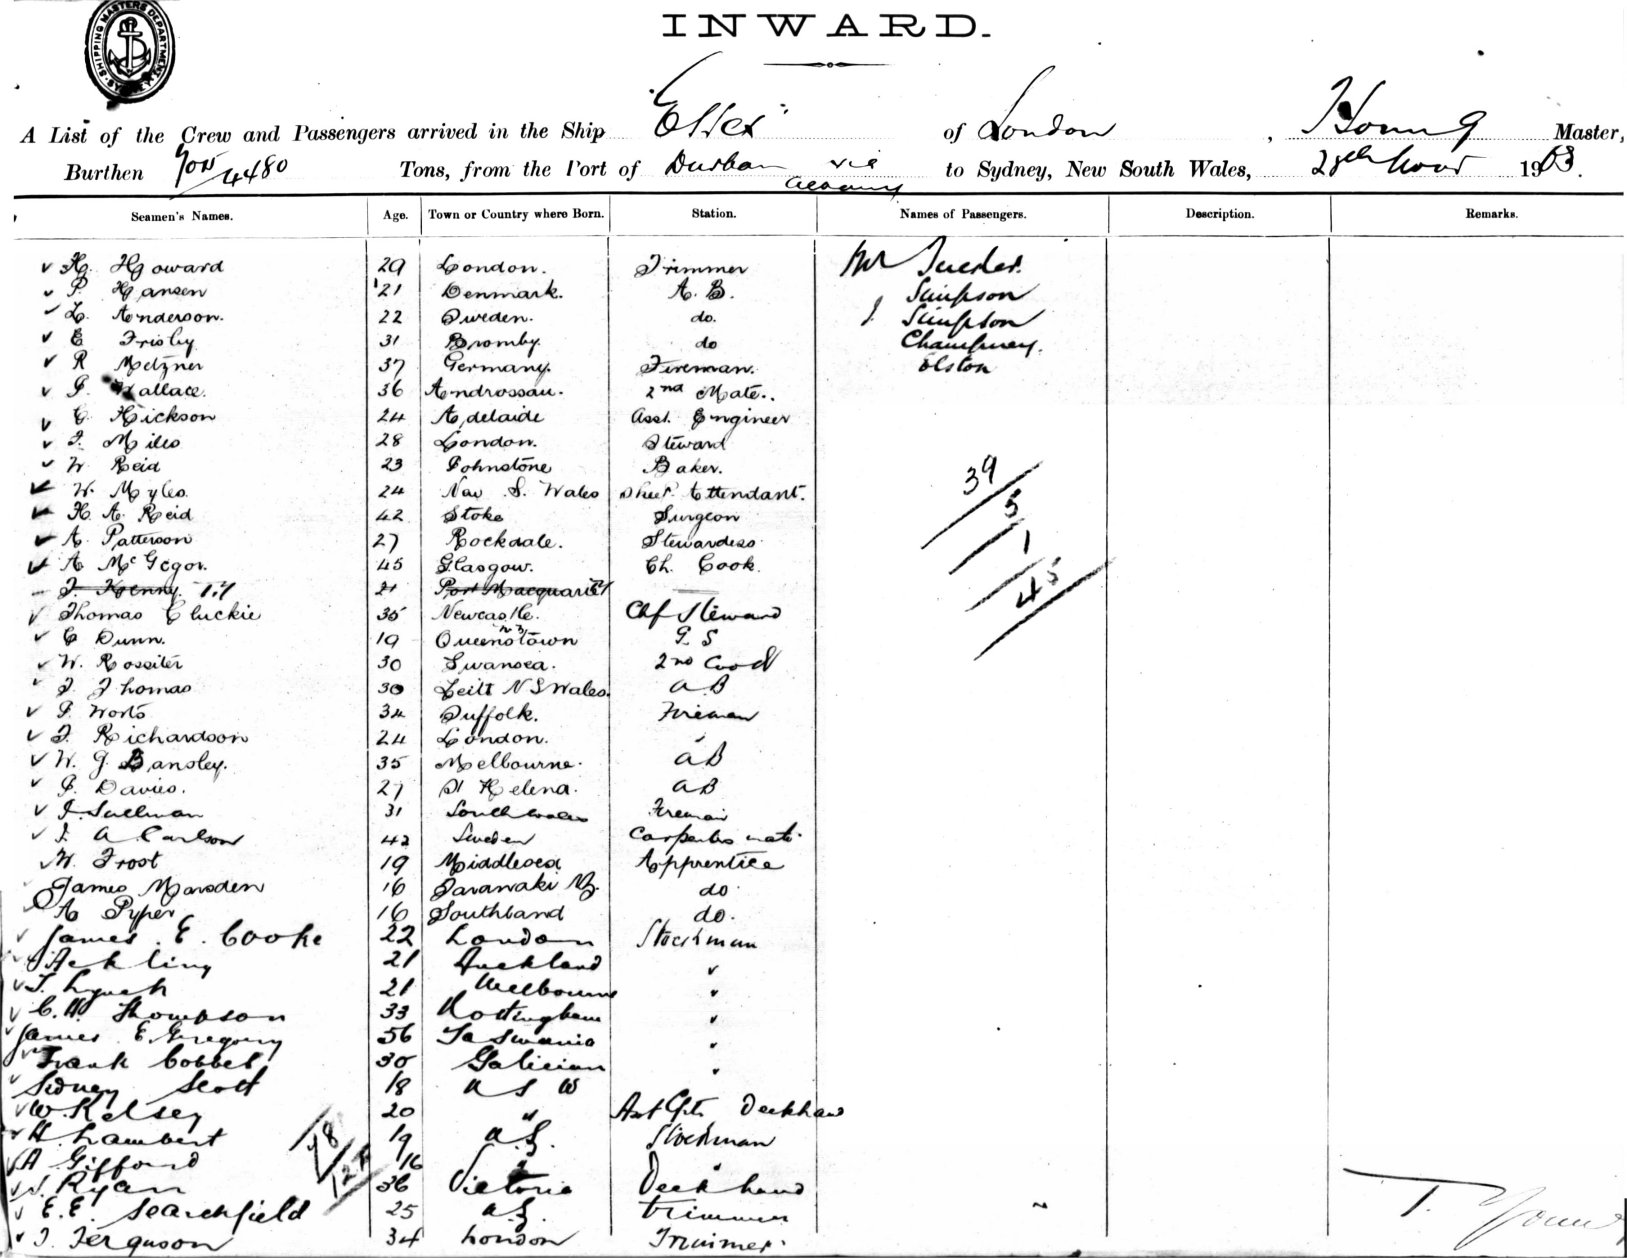 SHIPPING MASTERS DEPARTMENT
INWARD.
A List of the Crew and Passengers arrived in the Ship "Essex" of London, Young Master,
Burthen 4480 Tons, from the Port of Durban via to Sydney, New South Wales, 28th Novr 1903.
Seamen's Names. Age. Town or Country where Born. Station. Names of Passengers. Description. Remarks.
H. Howard 29 London. Trimmer Mr
P. Hansen 21 Denmark. A. B. Simpson
L. Anderson. 22 Sweden. do. J. Simpson
E Frisby 31 Bromby. do Champney.
R Metzner 37 Germany. Fireman. Elston
J. Wallace. 36 Androssan. 2nd Mate.
C. Hickson 24 Adelaide Asst. Engineer
J. Miles 28 London. Steward
W. Reid 23 Johnstone Baker. 39
W. Myles 24 New S. Wales Attendant. 5
H. A. Reid 42 Stoke Surgeon
A. Patterson 27 Rockdale. Stewardess 1
A McGegor. 45 Glasgow. Ch. Cook. 45
J. Kenny. 21 Port Macquarie
Thomas Cluckie 35 Newcastle. Chf Steward
C Dunn. 19 Queenstown G. S
W. Rossiter 30 Swansea. 2nd Cook
J. Thomas 30 N S Wales. A B
J. Worts 34 Suffolk. Fireman
J. Richardson 24 London.
W. G. Bansley. 35 Melbourne. A B
J. Davies. 27 St Helena. A B
J. Sullivan 31 South Wales Fireman
J. A. Carlson 42 Sweden Carpenters mate
W. Frost 19 Middlesea Apprentice
James Marsden 16 Taranaki NZ. do
A Pyper 16 Southland do.
James. E. Cooke 22 London Stockman
J Ackling 21 Auckland "
T. Lynch 21 Melbourne "
C. H. Thompson 33 Nottingham "
James E. Gregory 56 Tasmania "
Frank Cobbet 30 Galician "
Sidney Scott 18 N S W
W. Kelsey 20 " Deckhand
H. Lambert 19 N.Z. Stockman
A Gifford 16 "
J. Ryan 36 Victoria Deckhand
E. E. Searchfield 25 N.Z. Trimmer
J. Ferguson 34 London Trimmer.
T. Young